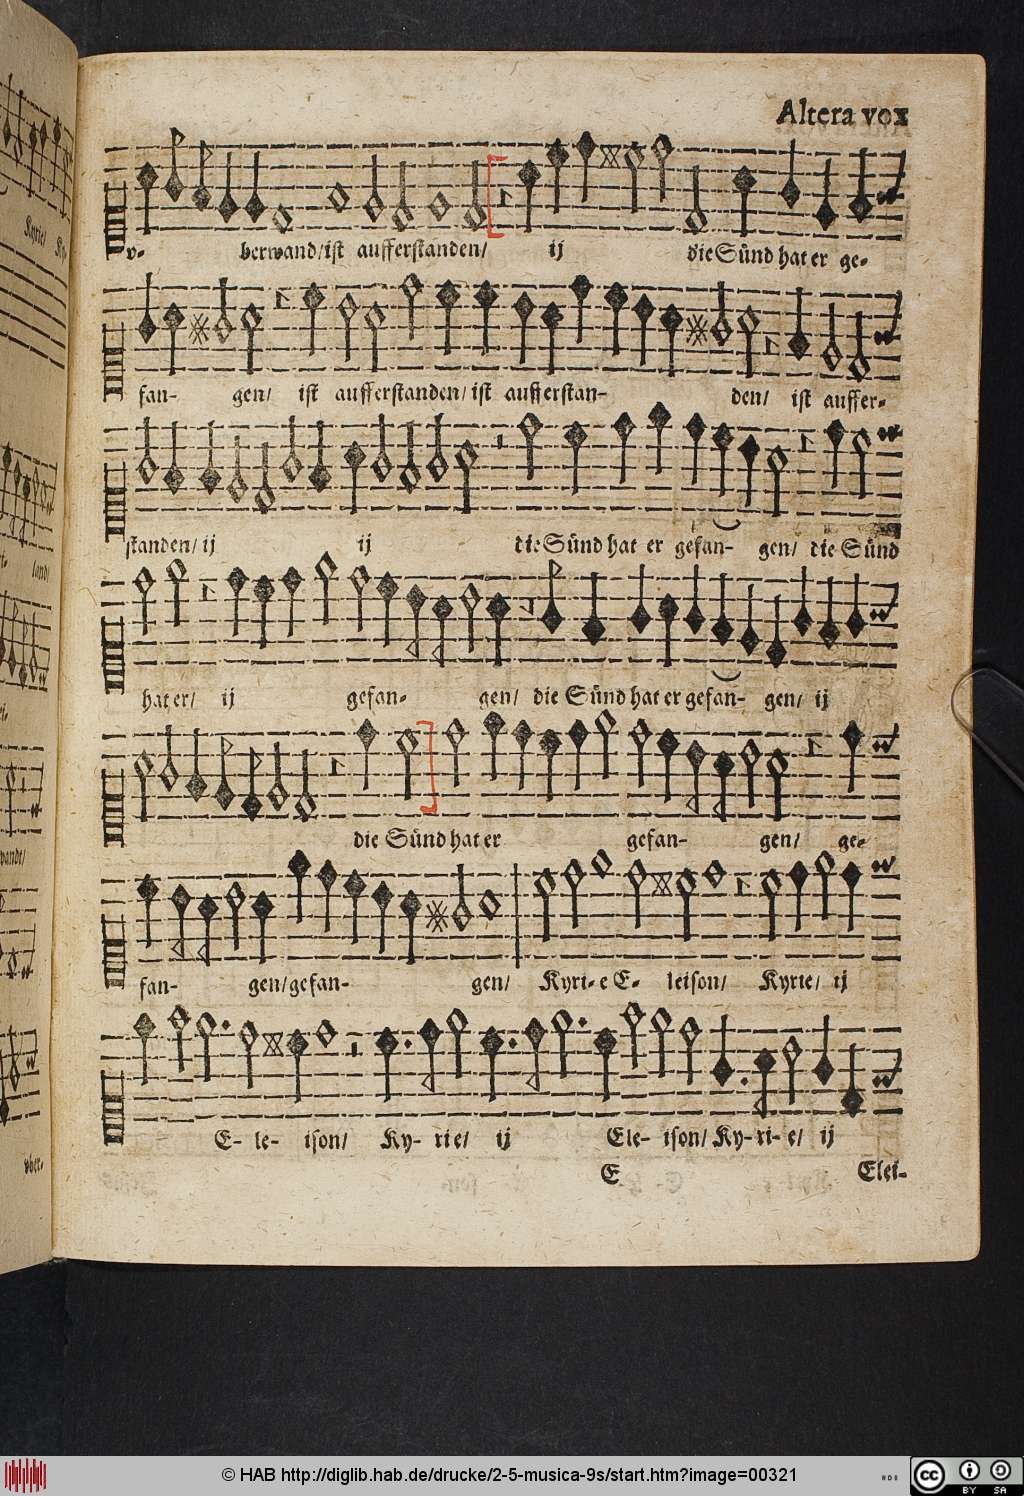 Altera vox
v- berwand/ist aufferstanden/ ij die Sünd hat er ge-
fan- gen/ ist aufferstanden/ ist aufferstan- den/ ist auffer-
standen/ ij ij die Sünd hat er gefan- gen/ die Sünd
hat er/ ij gefan- gen/ die Sünd hat er gefan- gen/ ij
die Sünd hat er gefan- gen/ ge-
fan- gen/gefan- gen/ Kyri- e E- leison/ Kyrie/ ij
E- le- ison/ Ky- rie/ ij Ele- ison/ Ky- ri- e/ ij
E Elei-
© HAB http://diglib.hab.de/drucke/2-5-musica-9s/start.htm?image=00321
cc BY SA